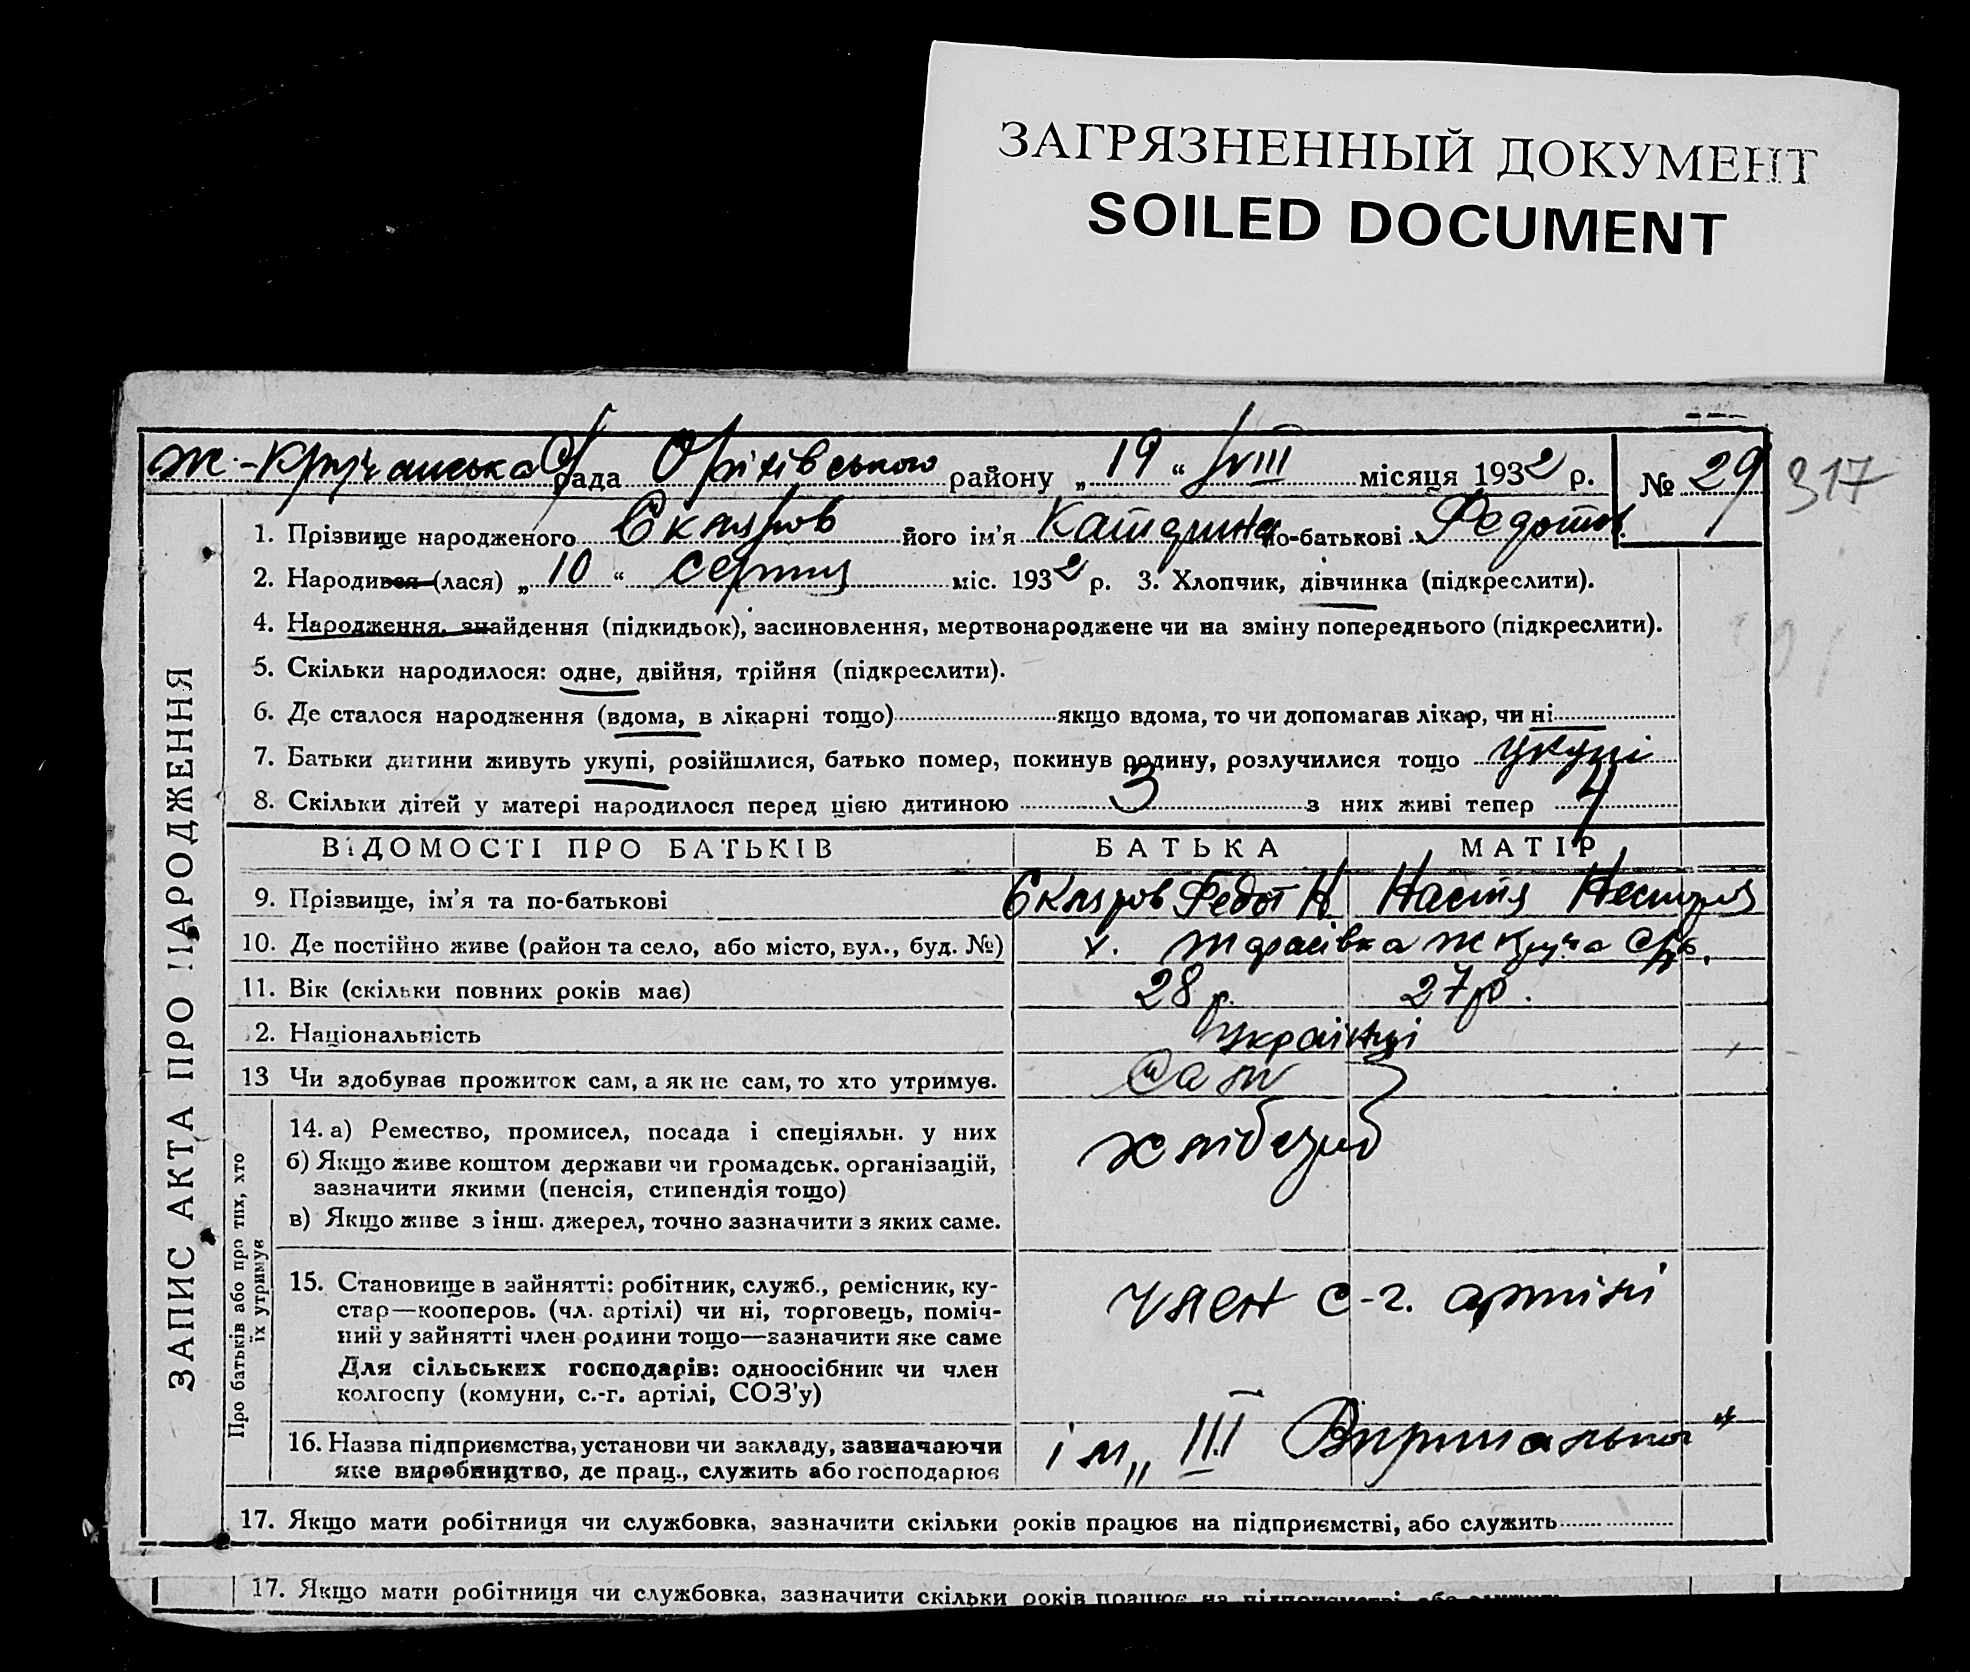 ЗАГРЯЗНЕННЫЙ ДОКУМЕНТ
SOILED DOCUMENT
Ж.-Кручанська С/рада Оріхівського району „ 19 “ VIII місяця 1932 р. № 29 317
1. Прізвище народженого Скляров його ім'я Катерина по-батькові Федотов.
2. Народився (лася) „ 10 “ серпня міс. 1932 р. 3. Хлопчик, дівчинка (підкреслити).
4. Народження, знайдення (підкидьок), засиновлення, мертвонароджене чи на зміну попереднього (підкреслити).
5. Скільки народилося: одне, двійня, трійня (підкреслити).
6. Де сталося народження (вдома, в лікарні тощо) якщо вдома, то чи допомагав лікар, чи ні
7. Батьки дитини живуть укупі, розійшлися, батько помер, покинув родину, розлучилися тощо укупі
8. Скільки дітей у матері народилося перед цією дитиною 3 з них живі тепер 4
ВІДОМОСТІ ПРО БАТЬКІВ БАТЬКА МАТІР
9. Прізвище, ім'я та по-батькові Скляров Федот Н Настя Нестеров
10. Де постійно живе (район та село, або місто, вул., буд. №) х. Тарасівка Ж Круча С/р.
11. Вік (скільки повних років має) 28 р. 27 р.
2. Національність Українці
13 Чи здобував прожиток сам, а як не сам, то хто утримує. Сам
14. а) Ремество, промисел, посада і спеціяльн. у них хлібороб
б) Якщо живе коштом держави чи громадськ. організацій,
зазначити якими (пенсія, стипендія тощо)
в) Якщо живе з інш. джерел, точно зазначити з яких саме.
15. Становище в зайнятті: робітник, служб., ремісник, ку-
стар—кооперов. (чл. артілі) чи ні, торговець, поміч-
ний у зайнятті член родини тощо—зазначити яке саме
член с-г. артілі
Для сільських господарів: одноосібник чи член
колгоспу (комуни, с.-г. артілі, СОЗ'у)
16. Назва підприємства, установи чи закладу, зазначаючи
яке виробництво, де прац., служить або господарює
ім „ III Вирішальной “
17. Якщо мати робітниця чи службовка, зазначити скільки років працює на підприємстві, або служить
17. Якщо мати робітниця чи службовка, зазначити скільки років працює на підприємстві, або служить
ЗАПИС АКТА ПРО НАРОДЖЕННЯ
Про батьків або про тих, хто
їх утримує